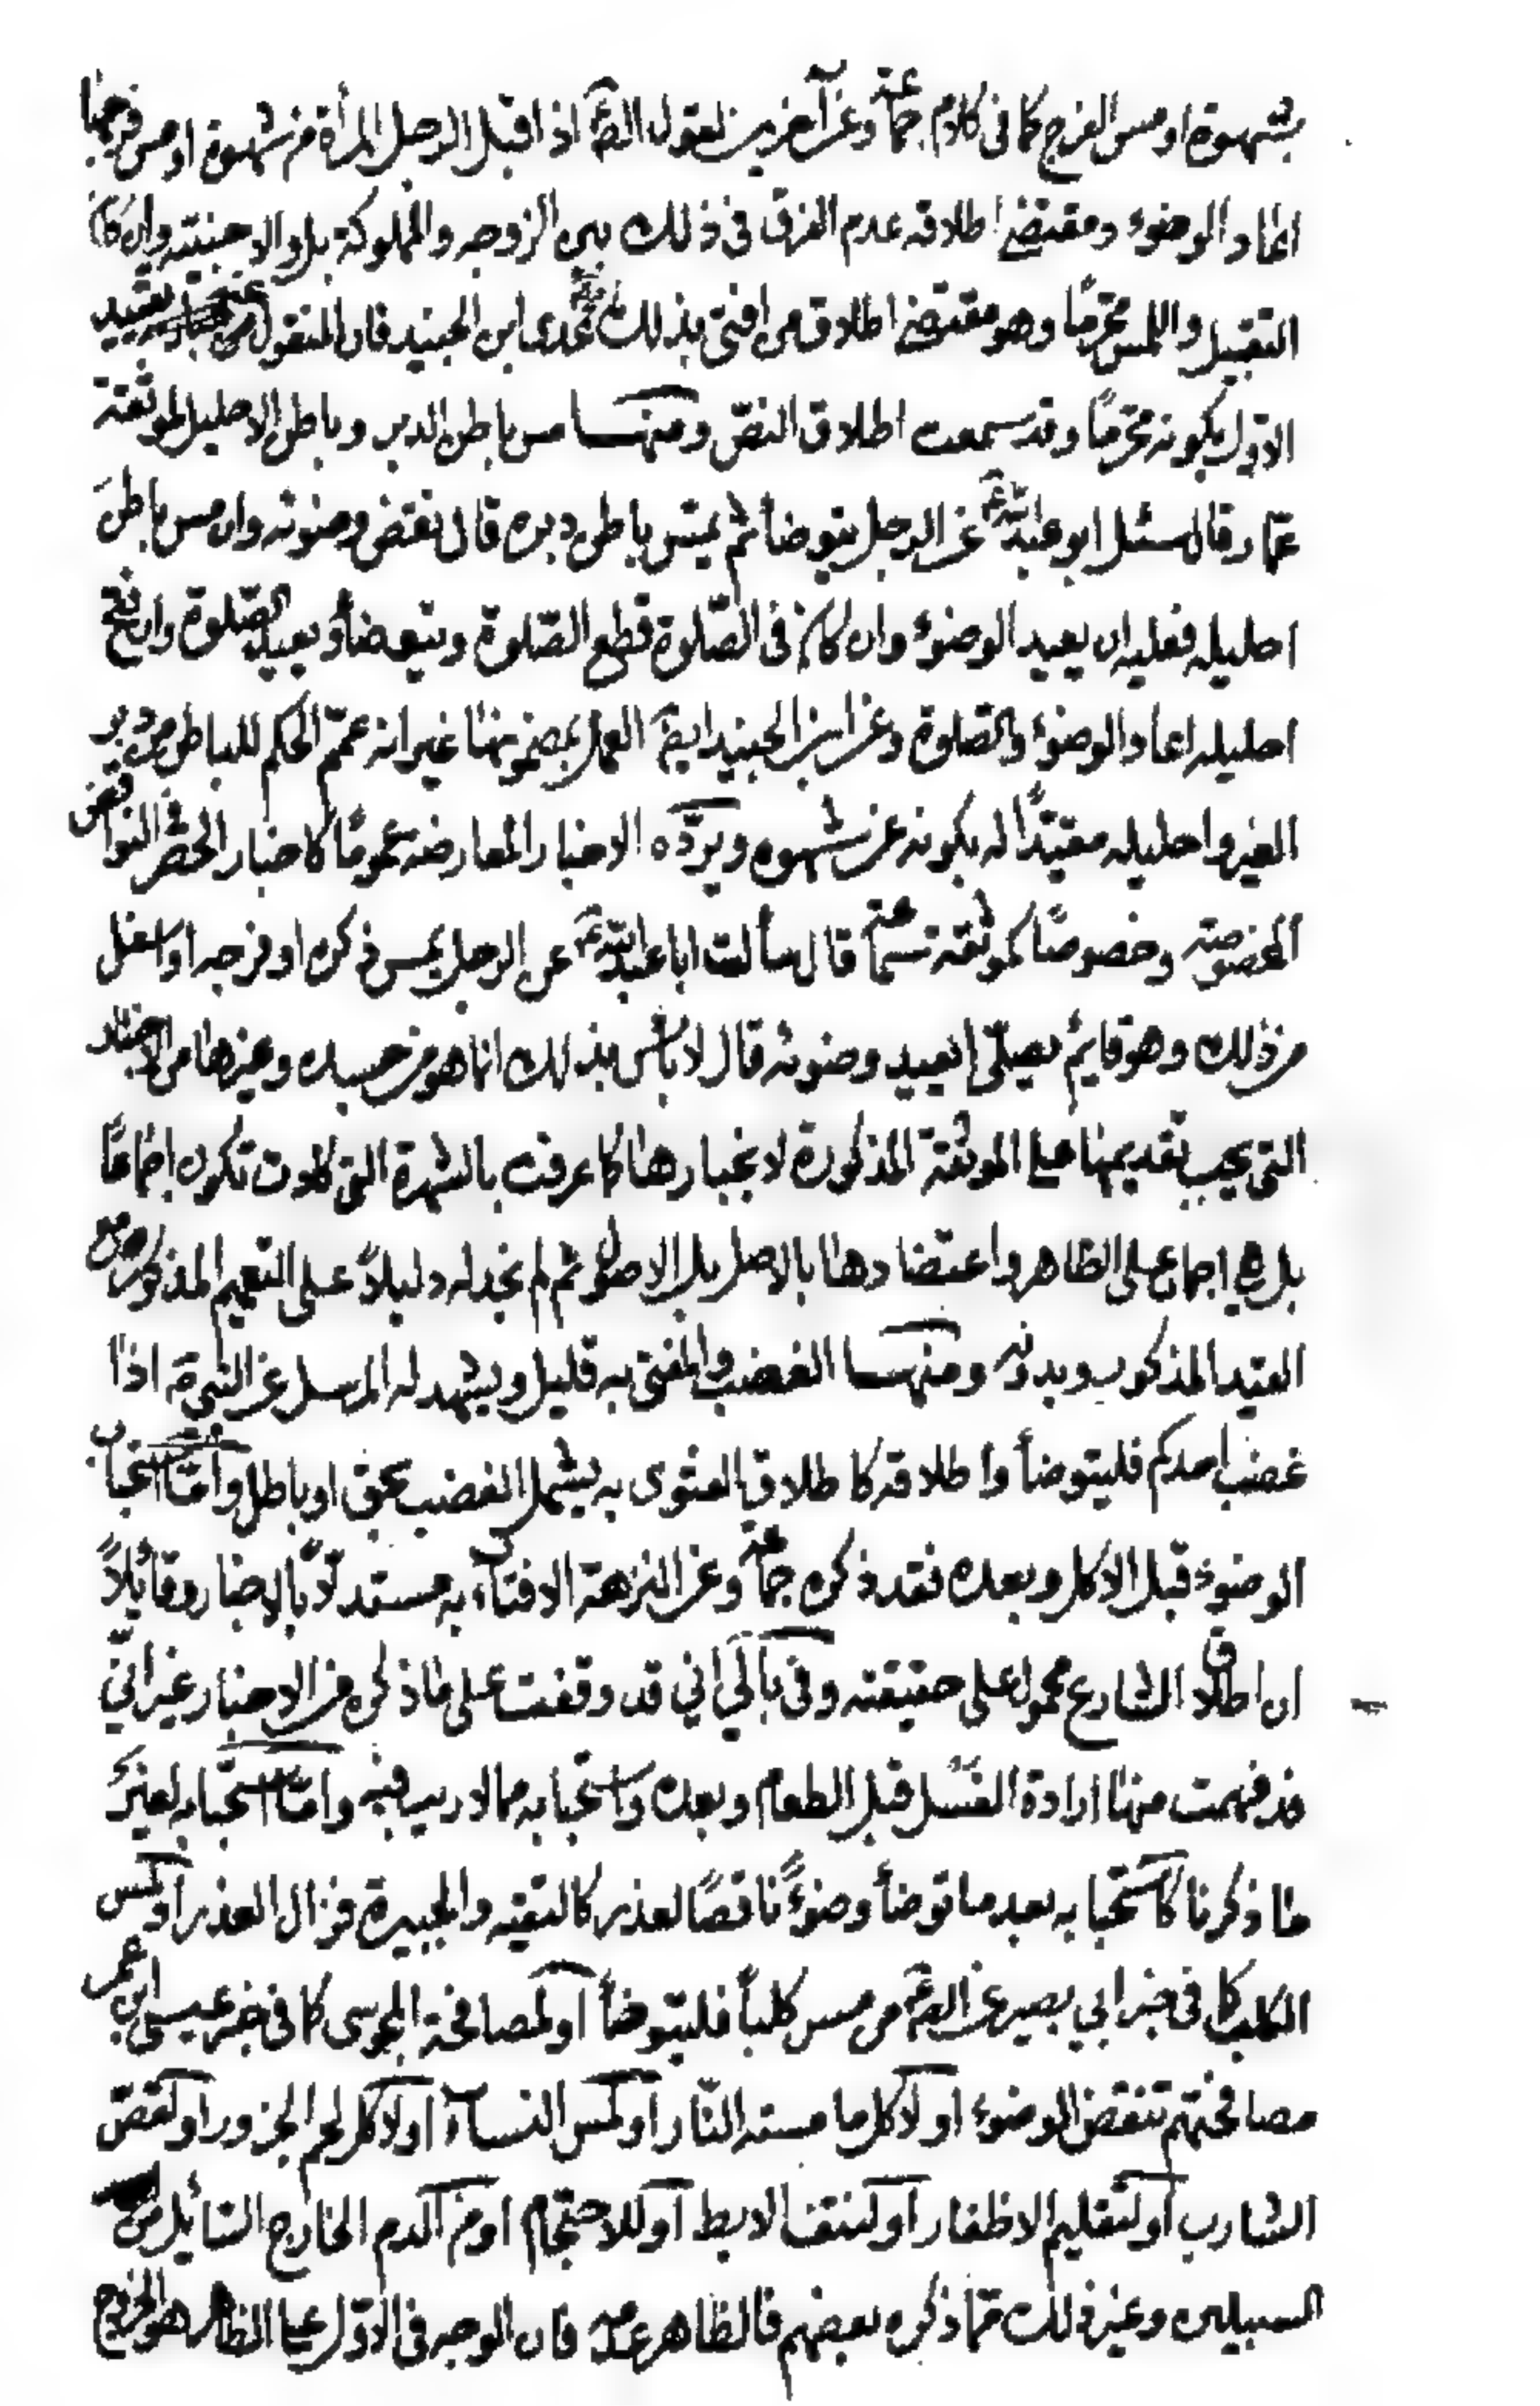 بشهوة او مس الفرج كما فى كلام جماعة وعن آخرين لقول الص‍ اذا قبل الرجل المرأة من شهوة او مس فرجها
اعاد الوضوء ومقتضى اطلاقه عدم الفرق فى ذلك بين الزوجه والمملوكة بل والاجنبيته وان كان
التقبيل واللمس محرمًا وهو مقتضى اطلاق من افتى بذلك عدى ابن الجنيد فان المنقول تقييد
الاول بكونه محرمًا وقد سمعت اطلاق النصّ ومنها مس باطن الدبر وباطن الاحليل لموثقة
عمار قال سئل ابو عبد الله ع عن الرجل يتوضأ ثم يمسّ باطن دبره قال نقض وضوئه وان مس باطن
احليله فعليه ان يعيد الوضوء وان كان فى الصّلوة قطع الصّلوة ويتوضأ ويعيد الصّلوة وان فتح
احليله اعاد الوضوء والصّلوة وعن ابن الجنيد ايض‍ العمل بمضمونها غير انه عمّم الحكم للباطن من دبر
الغير واحليله مقيّدًا له بكونه عن شهوه ويردّه الاخبار المعارضه عمومًا كاخبار الحصر فى النواقض
المخصوصة وخصوصًا كموثقة سماعة قال سألت ابا عبد الله ع عن الرجل يمس ذكره او فرجه او اسفل
من ذلك وهو قايم يصلّى ايعيد وضوئه قال لا باس بذلك انما هو من جسده وغيرها من الاخبار
التى يجب تقديمها على الموثقة المذكورة لانجبارها كما عرفت بالشهرة التى كادت تكون اجماعًا
بل هى اجماع على الظاهر واعتضادها بالاصل بل الاصول ثم لم نجد له دليلاً على التعميم المذكور مع
القيد المذكور وبدونه ومنها الغضب والمفتى به قليل ويشهد له المرسل عن النبى ص اذا
غضب احدكم فليتوضأ واطلاقه كاطلاق الفتوى به يشمل الغضب بحق او باطل وامّا استحباب
الوضوء قبل الاكل وبعده فقد ذكره جماعة وعن النزهة الافتاء به مستدلاً بالاخبار وقائلاً
ان اطلاق الشارع محمول على حقيقته وفى بالي اني قد وقفت على ما ذكره من الاخبار غير انّي
قد فهمت منها ارادة الغسل قبل الطعام وبعده واستحبابه مما لا ريب فيه وامّا استحبابه لغير
ما ذكرنا كاستحبابه بعد ما توضأ وضوءً ناقصًا لعذر كالتقيه والجبيرة فزال العذر او لمس
الكلب كما فى خبر ابي بصير عن الص‍ من مس كلباً فليتوضأ او لمصافحة المجوسى كما فى خبر عيسى ابن عمر
مصافحتهم تنقض الوضوء او لاكل ما مسته النّار او لمس النساء او لاكل لحم الجزور او لقصّ
الشارب او لتقليم الاظفار او لنتف الابط او للاحتجام او من الدم الخارج السّائل من
السبيلين وغير ذلك ممّا ذكره بعضهم فالظاهر عدمه فان الوجه فى الاوّل على الظاهر هو الخروج